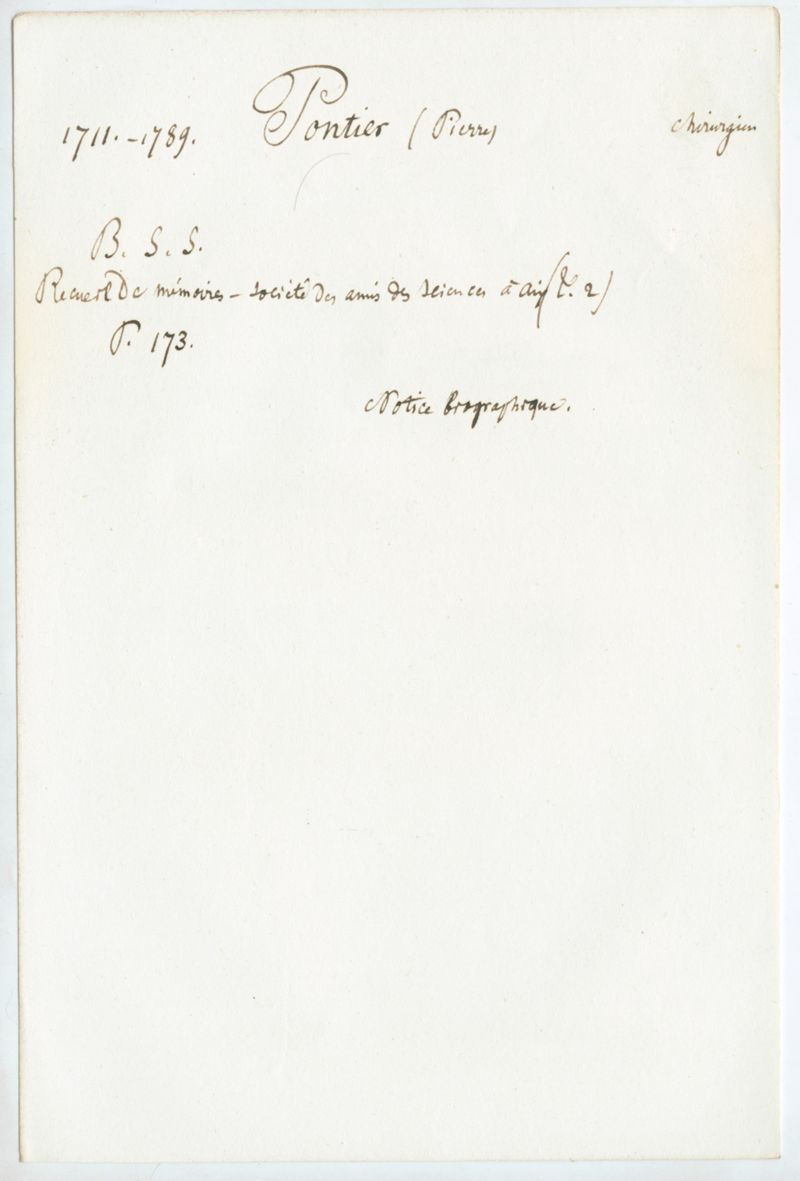 1711.-1789. Pontier (Pierre) chirurgien
B. S. S.
Recueil De mémoires - société Des amis des sciences à aix (t. 2)
P. 173.
Notice biographique.